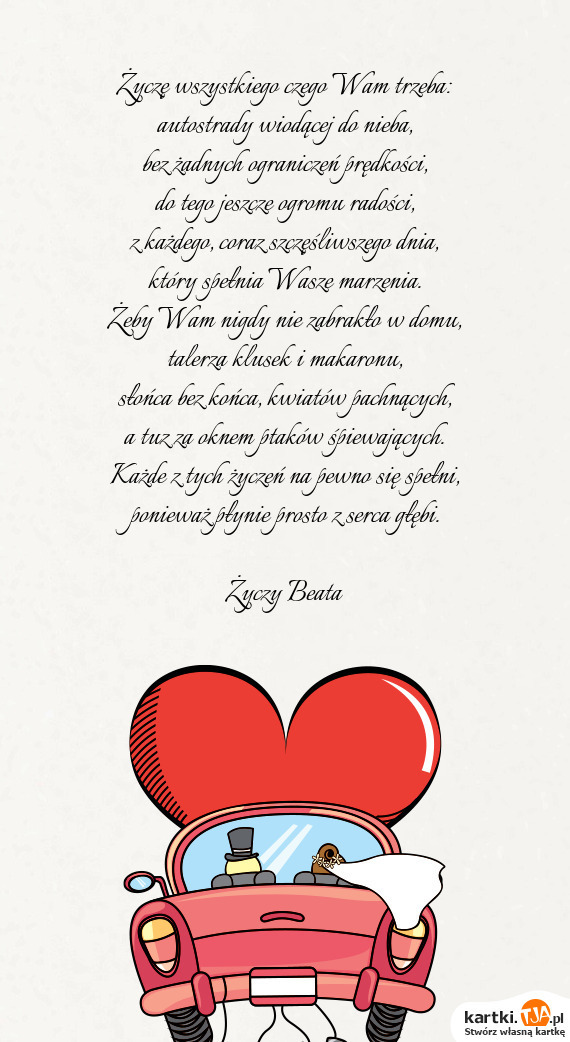 Życzę wszystkiego czego Wam trzeba:
autostrady wiodącej do nieba,
bez żadnych ograniczeń prędkości,
do tego jeszcze ogromu radości,
z każdego, coraz szczęśliwszego dnia,
który spełnia Wasze marzenia.
Żeby Wam nigdy nie zabrakło w domu,
talerza klusek i makaronu,
słońca bez końca, kwiatów pachnących,
a tuz za oknem ptaków śpiewających.
Każde z tych życzeń na pewno się spełni,
ponieważ płynie prosto z serca głębi.
Życzy Beata
kartki.TJA.pl
Stwórz własną kartkę